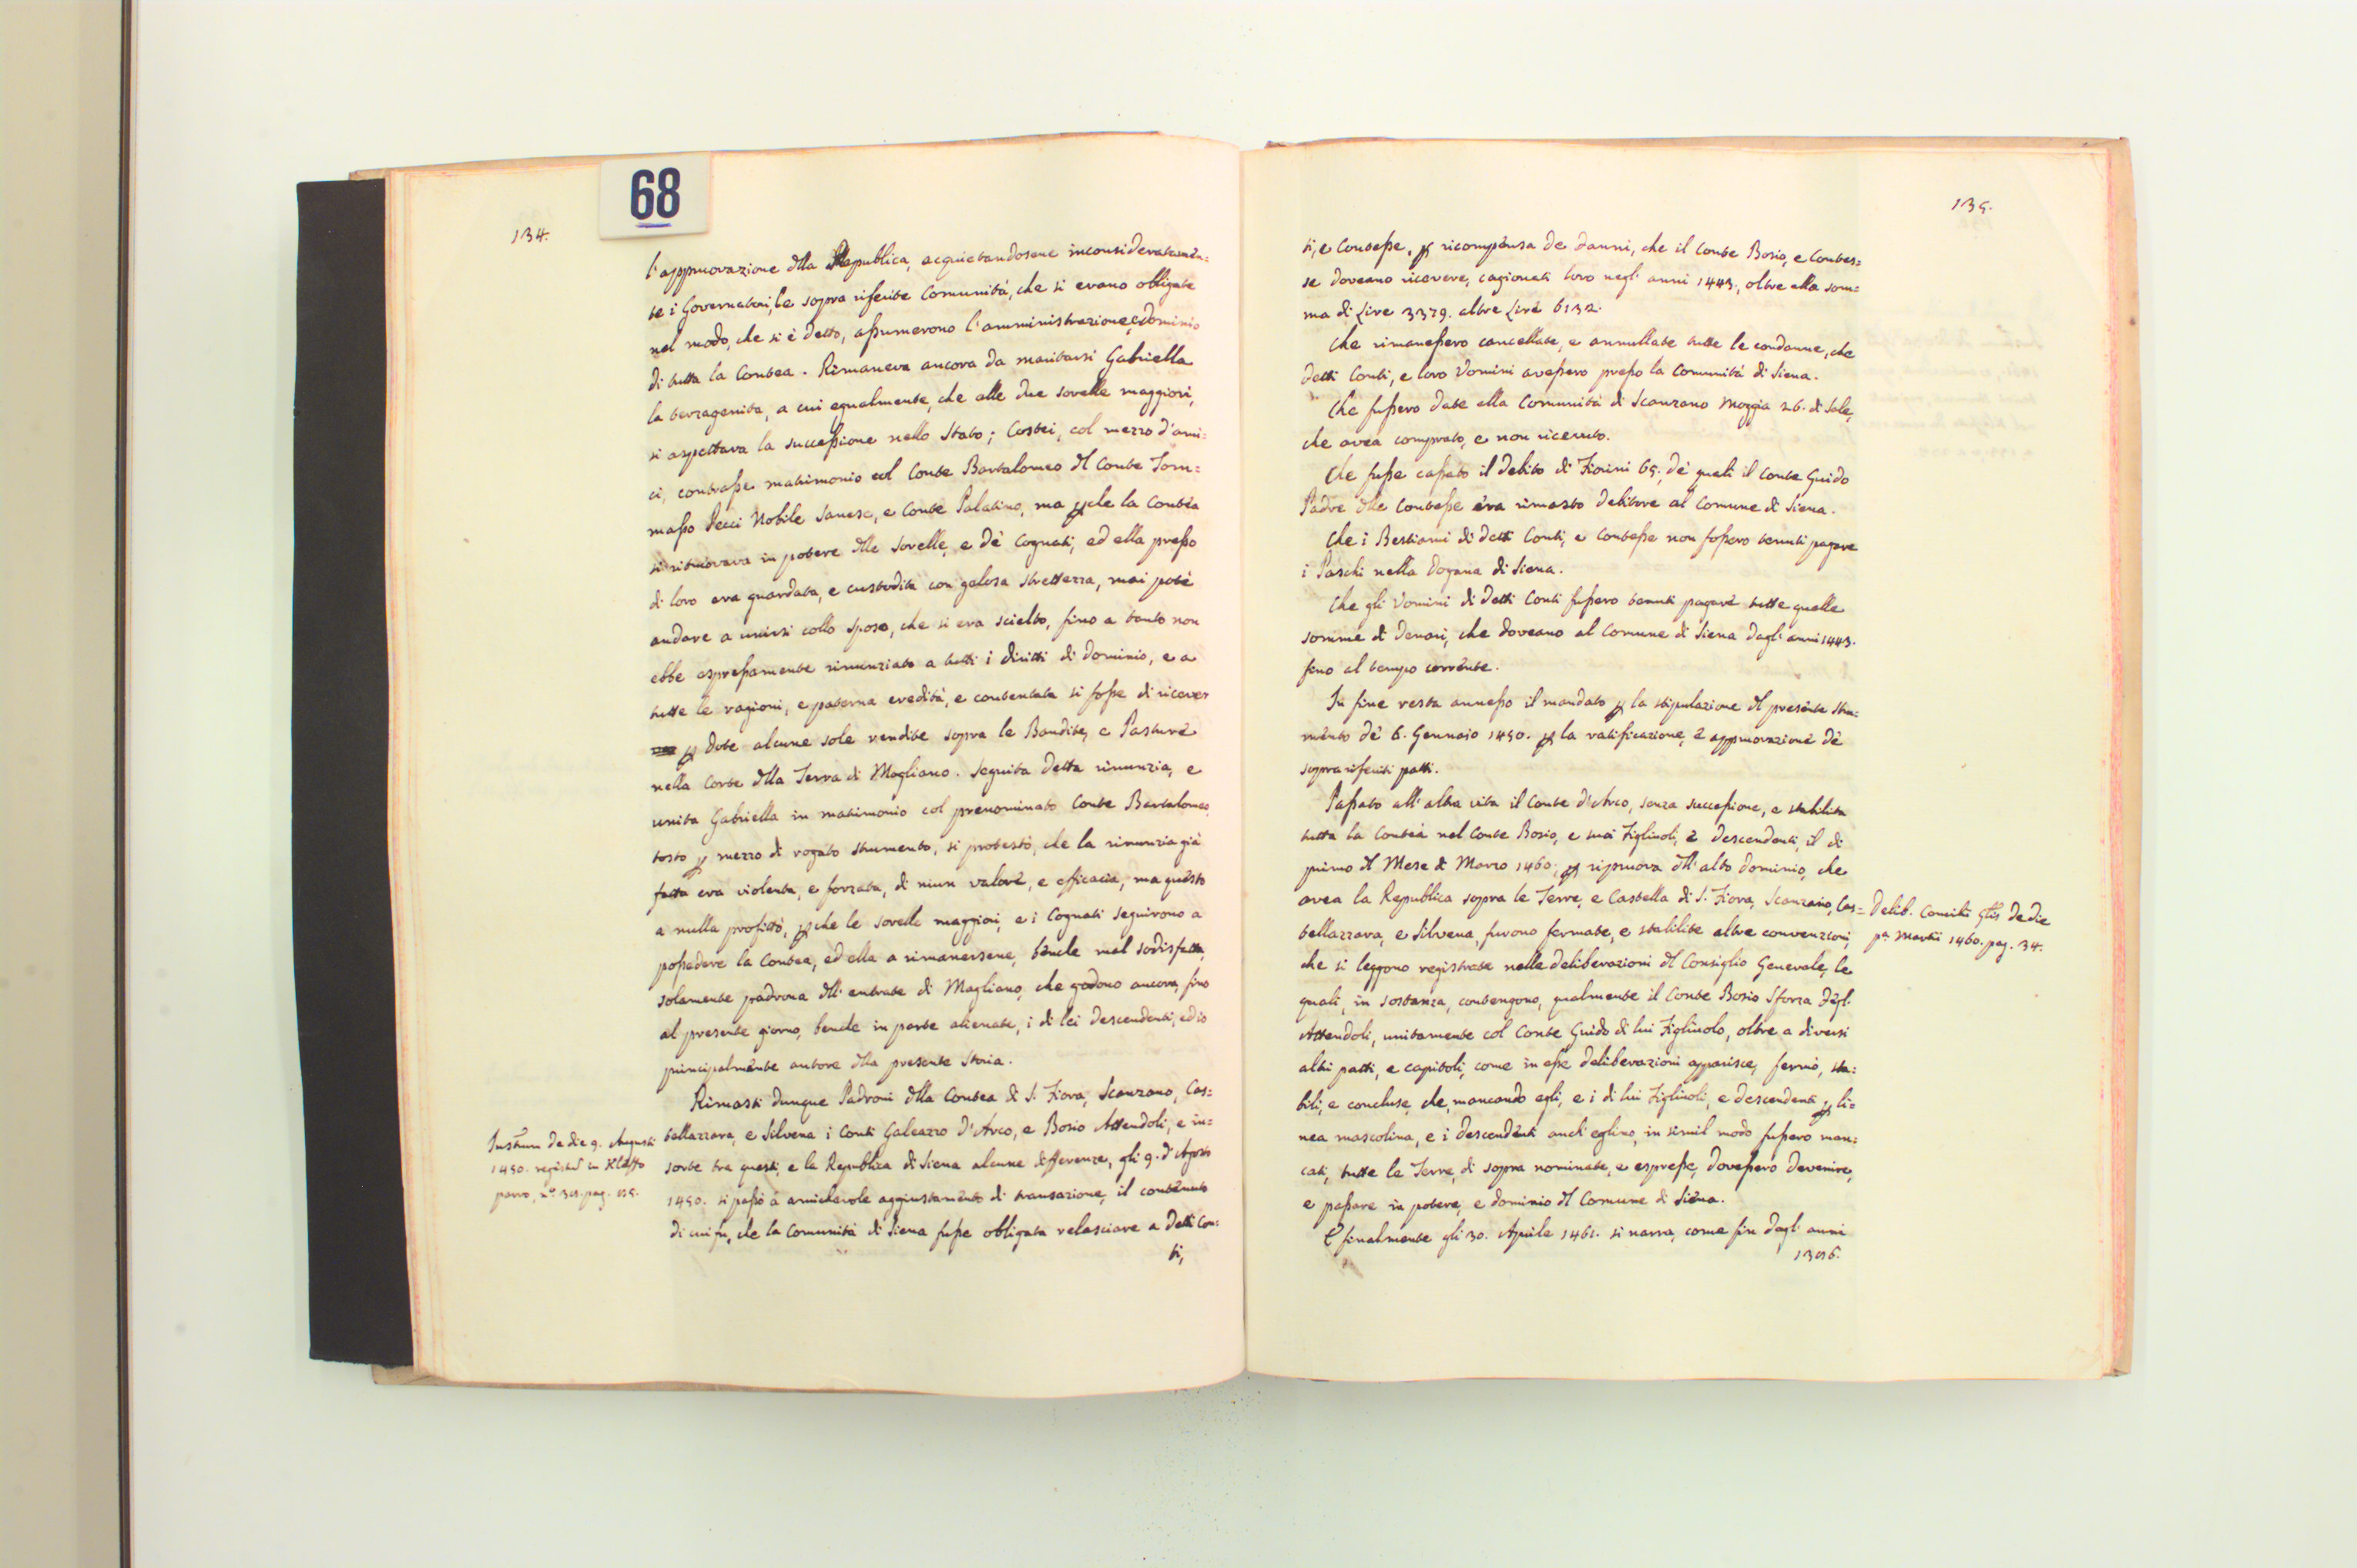 68
134.
l'appruovazione dlla Republica, acquietandosene inconsideratamen=
te i Governatori, le sopra riferite Comunità, che si erano obligate
nel modo, che si è detto, assumerono l'amministrazione, e dominio
di tutta la Contea. Rimaneva ancora da maritarsi Gabriella
la terzagenita, a cui egualmente, che alle due sorelle maggiori,
si aspettava la successione nello Stato; Costei, col mezzo d'ami=
ci, contrasse matrimonio col Conte Bartalomeo dl Conte Tom=
masso Pecci Nobile Sanese, e Conte Palatino, ma pche la Contea
si ritruovava in potere dlle sorelle, e de' Cognati, ed ella presso
di loro era guardata, e custodita con gelosa strettezza, mai potè
andare a unirsi collo sposo, che si era scielto, fino a tanto non
ebbe espressamente rinunziato a tutti i diritti di dominio, e a
tutte le ragioni, e paterna eredità, e contentata si fosse di ricever
p dote alcune sole rendite sopra le Bandite, e Pasture
nella Corte dlla Terra di Magliano. Seguita detta rinunzia, e
unita Gabriella in matrimonio col prenominato Conte Bartalomeo,
tosto p mezzo di rogato strumento, si protestò, che la rinunzia già
fatta era violenta, e forzata, di niun valore, e efficacia, ma questo
a nulla profittò, pche le sorelle maggiori, e i Cognati seguirono a
possedere la Contea, ed ella a rimanersene, benche mal sodisfatta,
solamente padrona dll' entrate di Magliano, che godono ancora, fino
al presente giorno, benche in parte alienate, i di lei descendenti, ed io
principalmente autore dlla presente Storia.
Rimasti dunque Padroni dlla Contea di S. Fiora, Scanzano, Cas=
tellazzara, e Silvena i Conti Galeazzo d'Arco, e Bosio Attendoli, e in=
sorte tra questi, e la Republica di Siena alcune differenze, gli 9. d'Agosto
1450. si passò a amichevole aggiustamento di transazione, il contenuto
di cui fu, che la Comunità di Siena fusse obligata relasciare a detti Con=
ti,
Instrum de die 9. Augusti
1450. registr in Kleffo
parvo, n.°
135.
ti, e Contesse, p ricompensa de danni, che il Conte Bosio, e Contes=
se doveano ricevere, cagionati loro negl' anni 1443., oltre alla som=
ma di Lire 3379. altre Lire 6132.
Che rimanessero cancellate, e annullate tutte le condanne, che
detti Conti, e loro Uomini avessero presso la Comunità di Siena.
Che fussero date alla Comunità di Scanzano Moggia 26. di Sale,
che avea comprato, e non ricevuto.
Che fusse cassato il debito di Fiorini 65. de' quali il Conte Guido
Padre dlle Contesse era rimasto debitore al Comune di Siena.
Che i Bestiami di detti Conti, e Contesse non fossero tenuti pagare
i Paschi nella Dogana di Siena.
Che gli Uomini di detti Conti fussero tenuti pagare tutte quelle
somme di denari, che doveano al Comune di Siena dagli anni 1443.
fino al tempo corrente.
In fine resta annesso il mandato p la stipulazione dl presente stru=
mento de' 6. Gennaio 1450. p la ratificazione, e appruovazione de'
sopra riferiti patti.
Passato all'altra vita il Conte d'Arco, senza successione, e stabilita
tutta la Contea nel Conte Bosio, e suoi Figliuoli, e descendenti, il dì
primo dl Mese di Marzo 1460., p ripruova dll' alto dominio, che
avea la Republica sopra le Terre, e Castella di S. Fiora, Scanzano, Cas=
tellazzara, e Silvena, furono fermate, e stabilite altre convenzioni,
che si leggono registrate nelle deliberazioni dl Consiglio Generale, le
quali, in sostanza, contengono, qualmente il Conte Bosio Sforza degl'
Attendoli, unitamente col Conte Guido di lui Figliuolo, oltre a diversi
altri patti, e capitoli, come in esse deliberazioni apparisce, fermò, sta=
bilì, e concluse, che, mancando egli, e i di lui Figliuoli, e descendenti p li=
nea mascolina, e i descendenti anch' eglino, in simil modo fussero man=
cati, tutte le Terre, di sopra nominate, e espresse, dovessero devenire,
e passare in potere, e dominio dl Comune di Siena.
E finalmente gli 30. Aprile 1461. si narra, come fin dagl' anni
Delib. Concilii Glis de die
pa. Martii 1460. pag. 34.